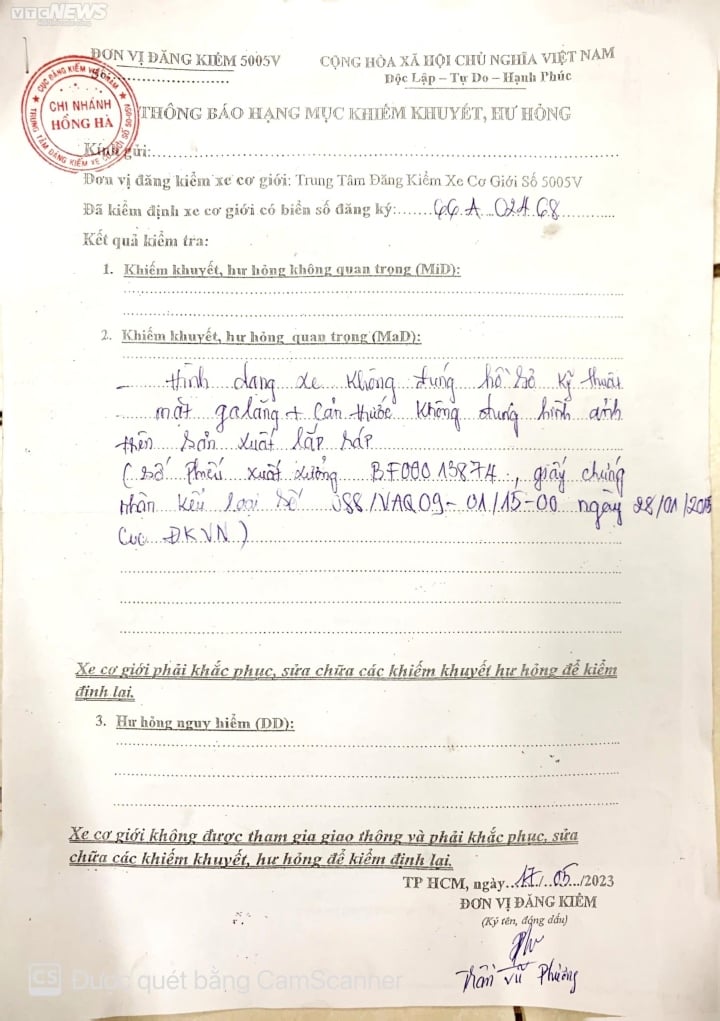 VTC NEWS
ĐƠN VỊ ĐĂNG KIỂM 5005V
CỘNG HÒA XÃ HỘI CHỦ NGHĨA VIỆT NAM
Số:
Độc Lập - Tự Do - Hạnh Phúc
CHI NHÁNH
HỒNG HÀ
THÔNG BÁO HẠNG MỤC KHIẾM KHUYẾT, HƯ HỎNG
Kính gửi:
Đơn vị đăng kiểm xe cơ giới: Trung Tâm Đăng Kiểm Xe Cơ Giới Số 5005V
Đã kiểm định xe cơ giới có biển số đăng ký: 66A 02468
Kết quả kiểm tra:
1. Khiếm khuyết, hư hỏng không quan trọng (MiD):
2. Khiếm khuyết, hư hỏng quan trọng (MaD):
- Hình dang xe không đúng hồ sơ kỹ thuật
mặt galăng + Cản trước không đúng hình ảnh
trên sản xuất lắp ráp
(số Phiếu xuất xưởng BF00013874, giấy chứng
nhận kiểu loại số 088/VAQ09-01/15-00 ngày 28/01/2015
Cục ĐKVN)
Xe cơ giới phải khắc phục, sửa chữa các khiếm khuyết hư hỏng để kiểm
định lại.
3. Hư hỏng nguy hiểm (DD):
Xe cơ giới không được tham gia giao thông và phải khắc phục, sửa
chữa các khiếm khuyết, hư hỏng để kiểm định lại.
TP HCM, ngày 17/05/2023
ĐƠN VỊ ĐĂNG KIỂM
(Ký tên, đóng dấu)
Trần Vũ Phương
CS Được quét bằng CamScanner